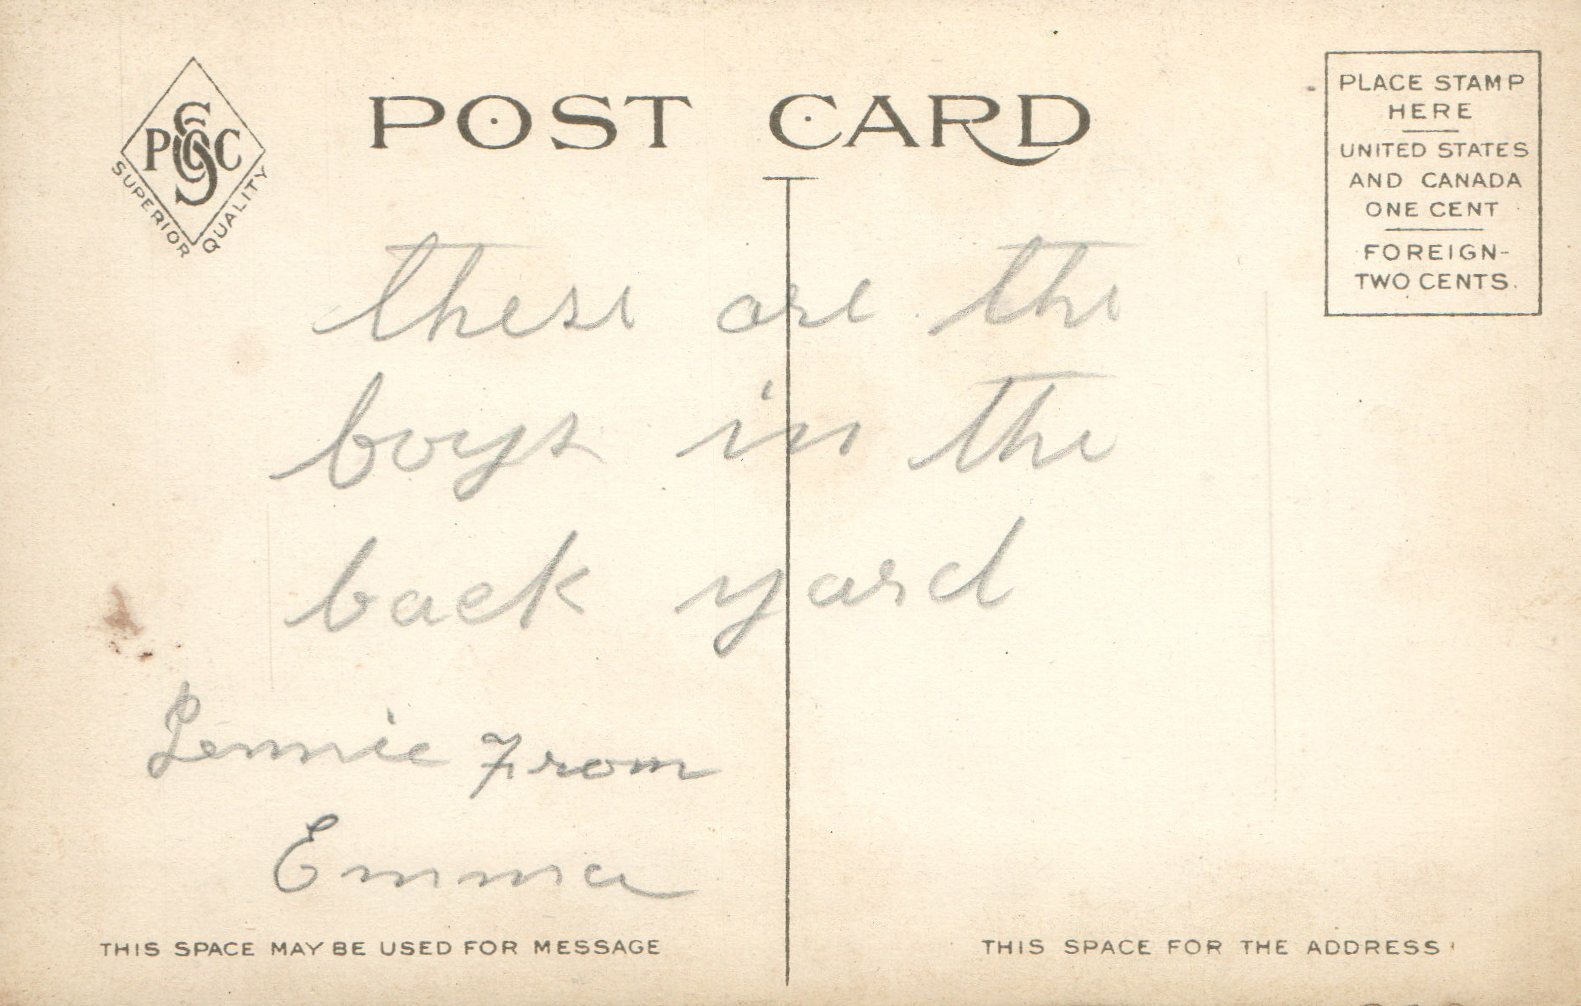 POST CARD
PSCS
SUPERIOR QUALITY
PLACE STAMP
HERE
UNITED STATES
AND CANADA
ONE CENT
FOREIGN-
TWO CENTS.
these are the
boys in the
back yard
Lennie From
Emma
THIS SPACE MAY BE USED FOR MESSAGE
THIS SPACE FOR THE ADDRESS